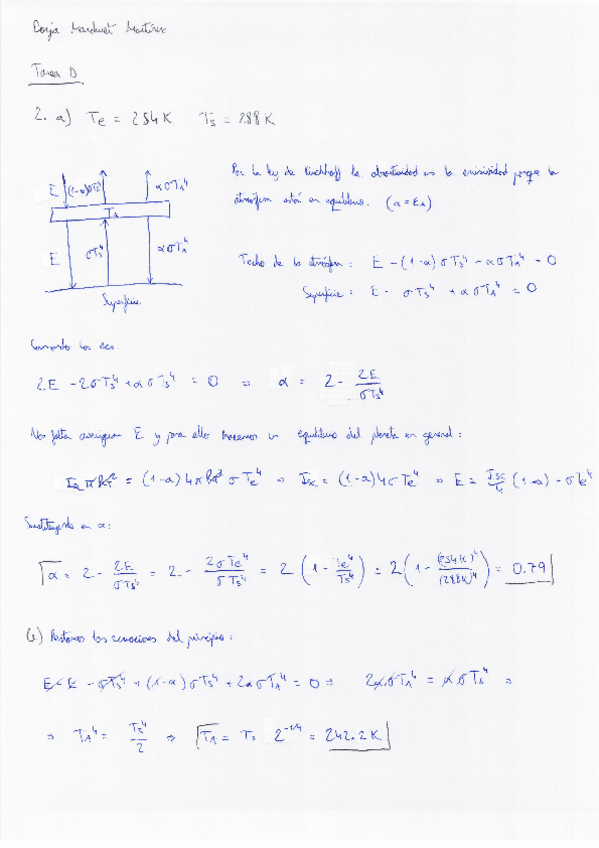 Borja Marchuet Martínez
Tarea D
2. a) Te = 254K Ts = 288K
Por la ley de Kirchhoff la absortividad es la emisividad porque la
atmósfera está en equilibrio. (α = εA)
E (1-α)σTs⁴ ασTA⁴
TA
E σTs⁴ ασTA⁴
Superficie
Techo de la atmósfera: E - (1-α)σTs⁴ - ασTA⁴ = 0
Superficie: E - σTs⁴ + ασTA⁴ = 0
Sumando las ecs.
2E - 2σTs⁴ + ασTs⁴ = 0 ⇒ α = 2 - 2E/σTs⁴
Nos falta averiguar E y para ello hacemos un equilibrio del planeta en general:
= (1-a) 4π σTe⁴ ⇒ Isc = (1-a)4σTe⁴ ⇒ E = Isc/4 (1-a) - σTe⁴
Sustituyendo en α:
α = 2 - 2E/σTs⁴ = 2 - 2σTe⁴/σTs⁴ = 2(1 - Te⁴/Ts⁴) = 2(1 - (254K)⁴/(288K)⁴) = 0.79
Restamos las ecuaciones del principio:
E - E - σTs⁴ + (1-α)σTs⁴ + 2ασTA⁴ = 0 ⇒ 2ασTA⁴ = ασTs⁴ ⇒
⇒ TA⁴ = Ts⁴/2 ⇒ TA = Ts 2^-1/4 = 242.2K